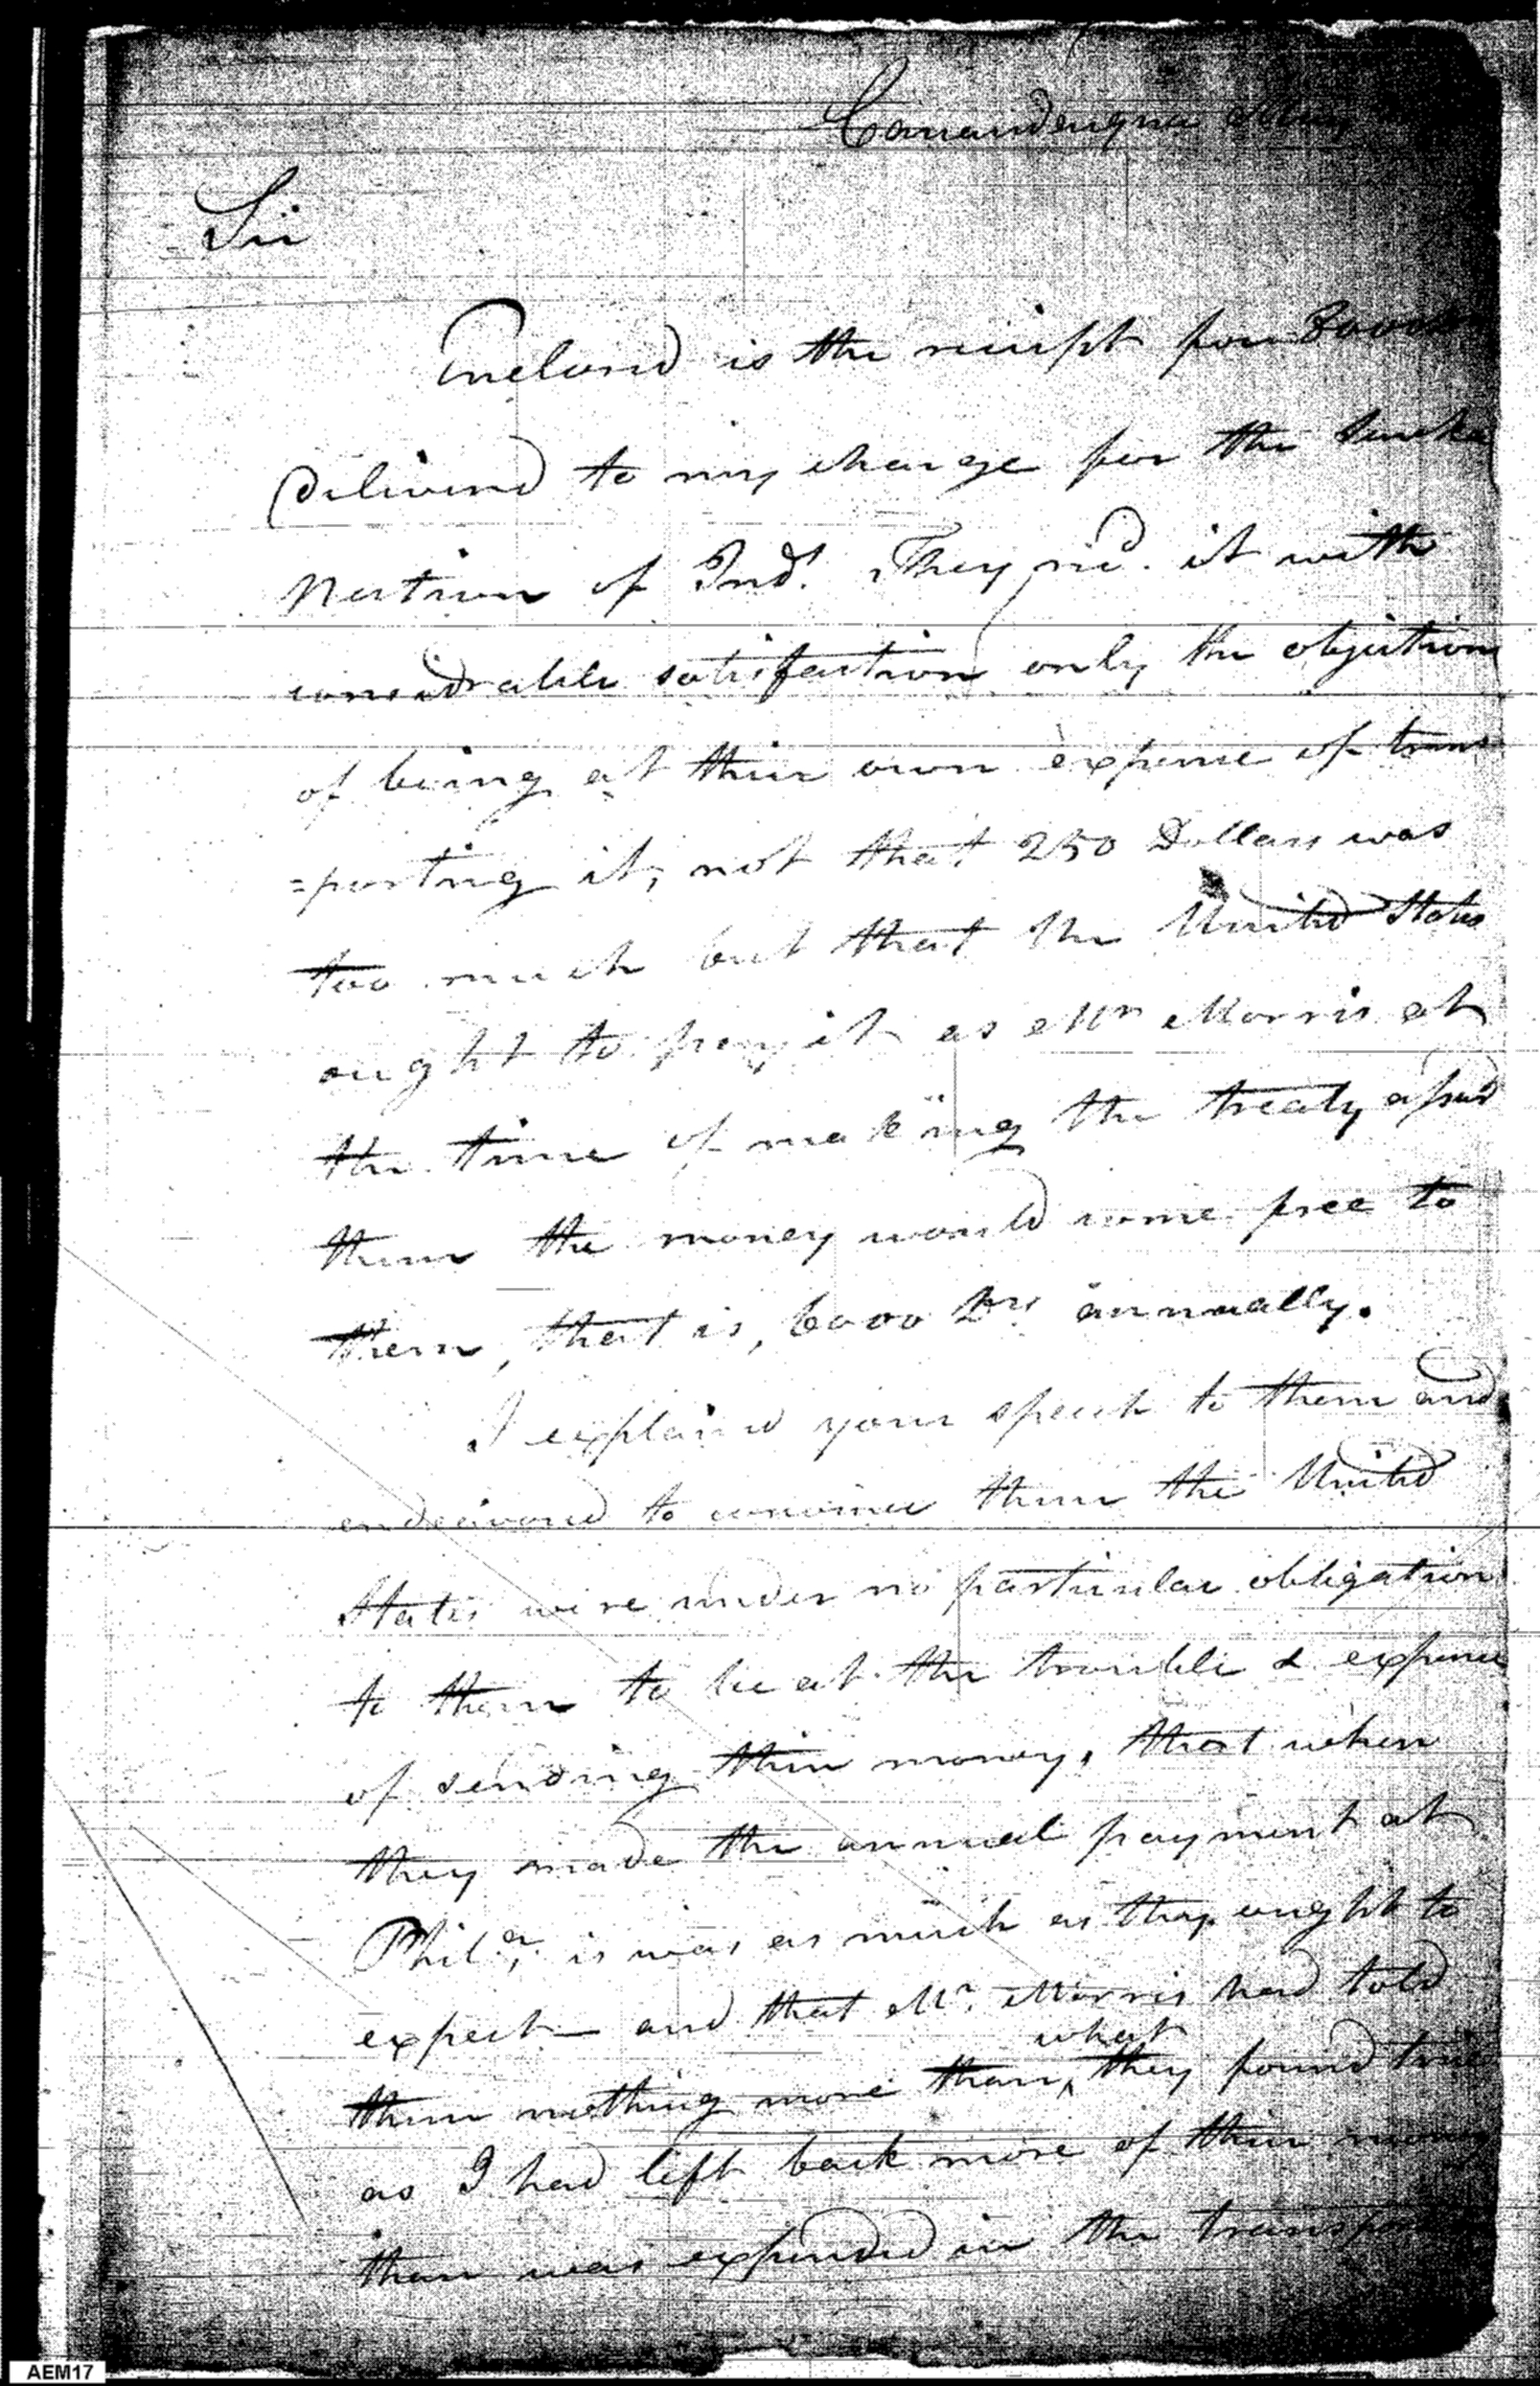 Canandaigua
Sir
Enclosed is the reciept for
Delivered to my charge for the Seneka
Nertion of Inds. They recd. it with
considrable satisfaction only the objections
of being at thier own expense of trans
=porting it, not that 250 Dollars was
too much but that the United States
ought to pay it as Mr Morris at
the time of making the treaty assured
them the money would come free to
them, that is, 6000 Drs annually.
I explained your speech to them and
endeavored to convince them the United
States were under no particular obligation
to them to be at the trouble & expence
of sending thier money, that when
they made the annual payment at
Phila, is was as much as they ought to
expect — and that Mr. Morris had told
what
them nothing more than ^ they found true
as I had left back more of thier money
than was expended in the
AEM17